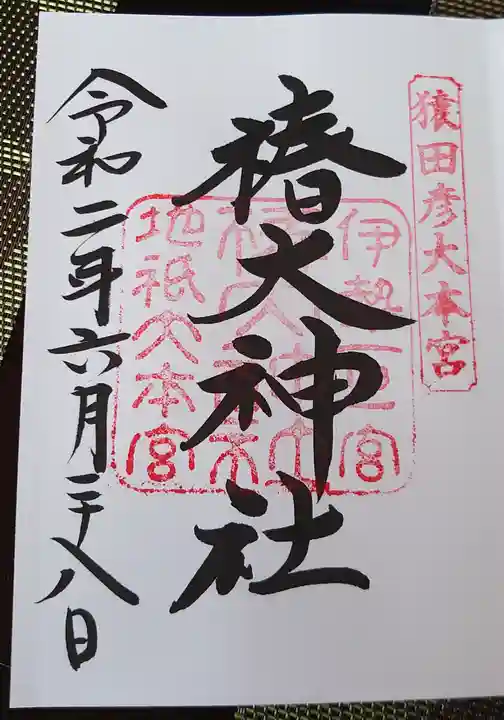 猿田彦大本宮
伊勢一宮
椿大神社
地祇大本宮
椿大神社
令和二年六月二十八日